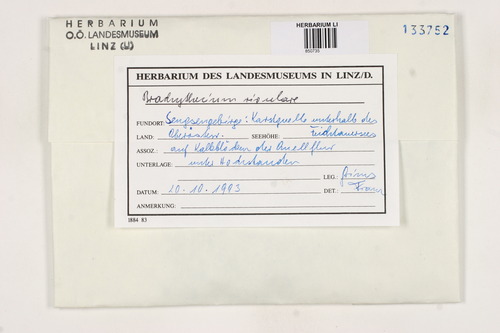 HERBARIUM
O.Ö. LANDESMUSEUM
LINZ (LI)
HERBARIUM LI
133752
HERBARIUM DES LANDESMUSEUMS IN LINZ/D.
Brachythecium rivulare
FUNDORT: Sengsengebirge: Karstquelle unterhalb des
LAND: Oberösterr. SEEHÖHE:
ASSOZ.: auf Kalkblöcken der Quellflur
UNTERLAGE: unter Hochstauden
LEG.: Grims
DATUM: 10.10.1993 DET.: Franz
ANMERKUNG:
1884 83